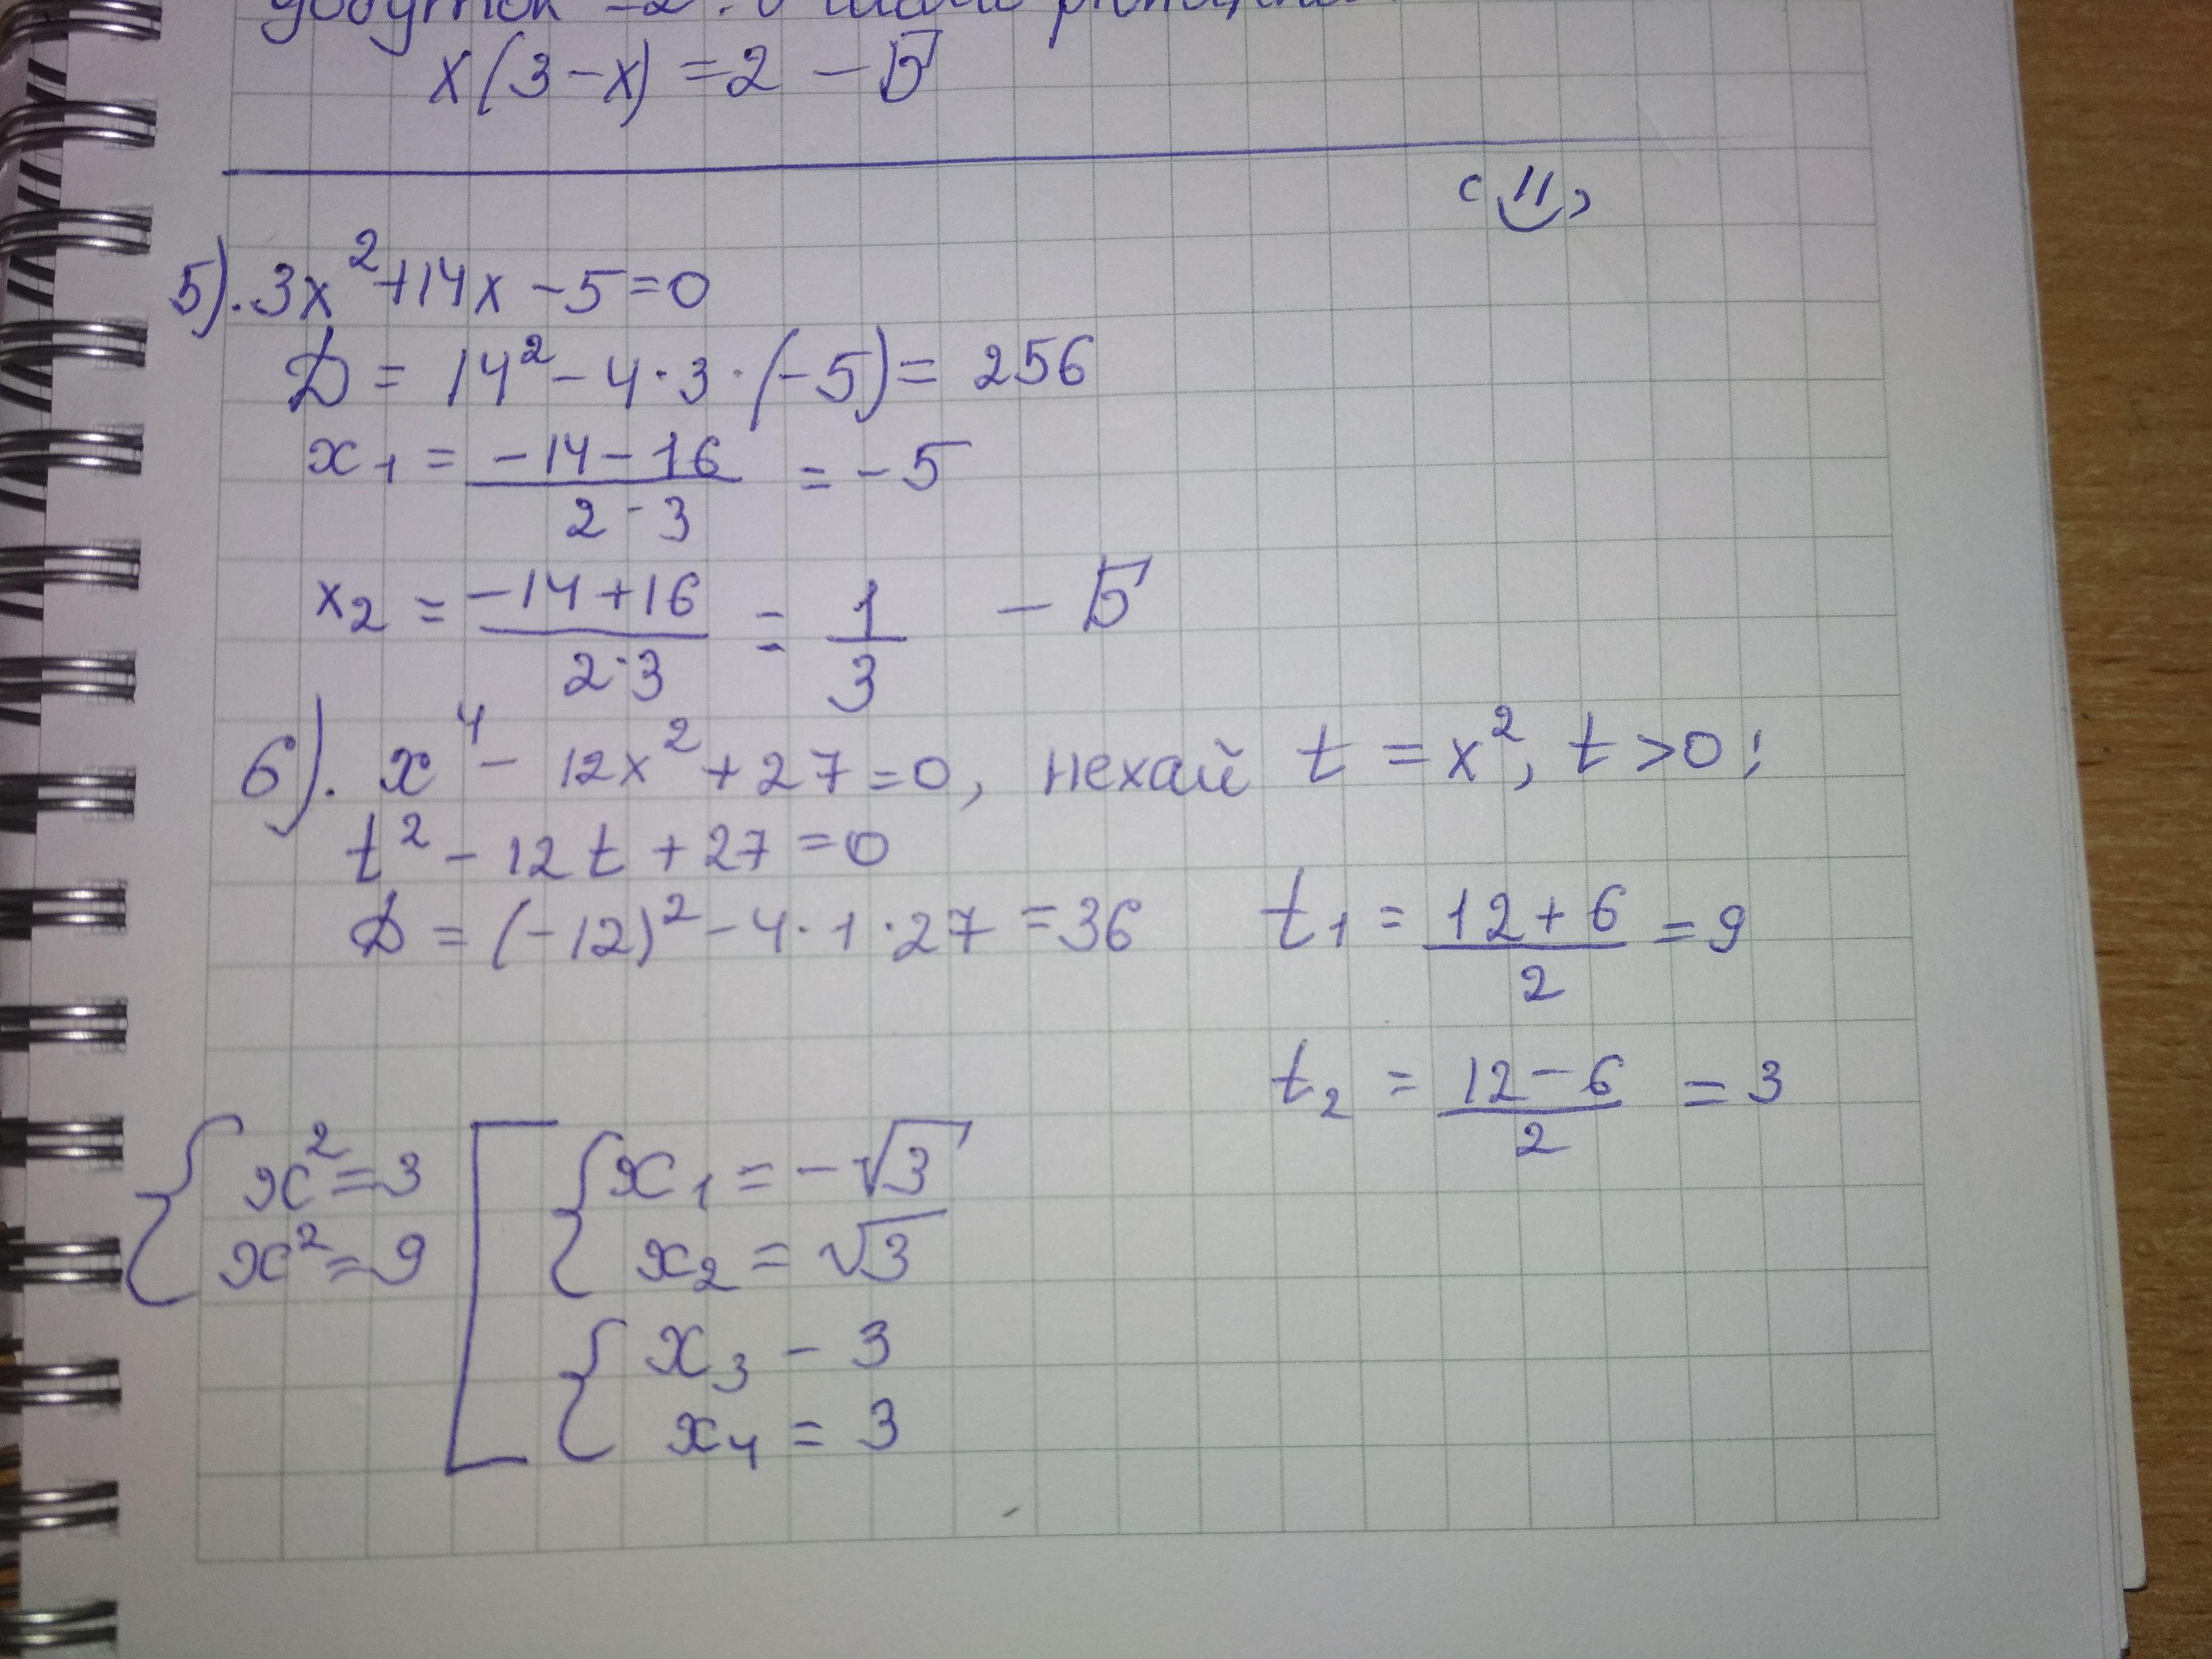 добуток =2.
x(3-x) =2 - Б
5). 3x²+14x-5=0
D = 14²-4·3·(-5)= 256
x₁ = (-14-16)/(2·3) = -5
x₂ = (-14+16)/(2·3) = 1/3 - Б
6). x⁴ - 12x²+27=0, нехай t = x², t>0;
t² - 12t + 27 =0
D = (-12)² - 4·1·27 =36
t₁ = (12+6)/2 = 9
t₂ = (12-6)/2 = 3
{ x²=3
x²=9
[ { x₁ = -√3
x₂ = √3
{ x₃ - 3
x₄ = 3